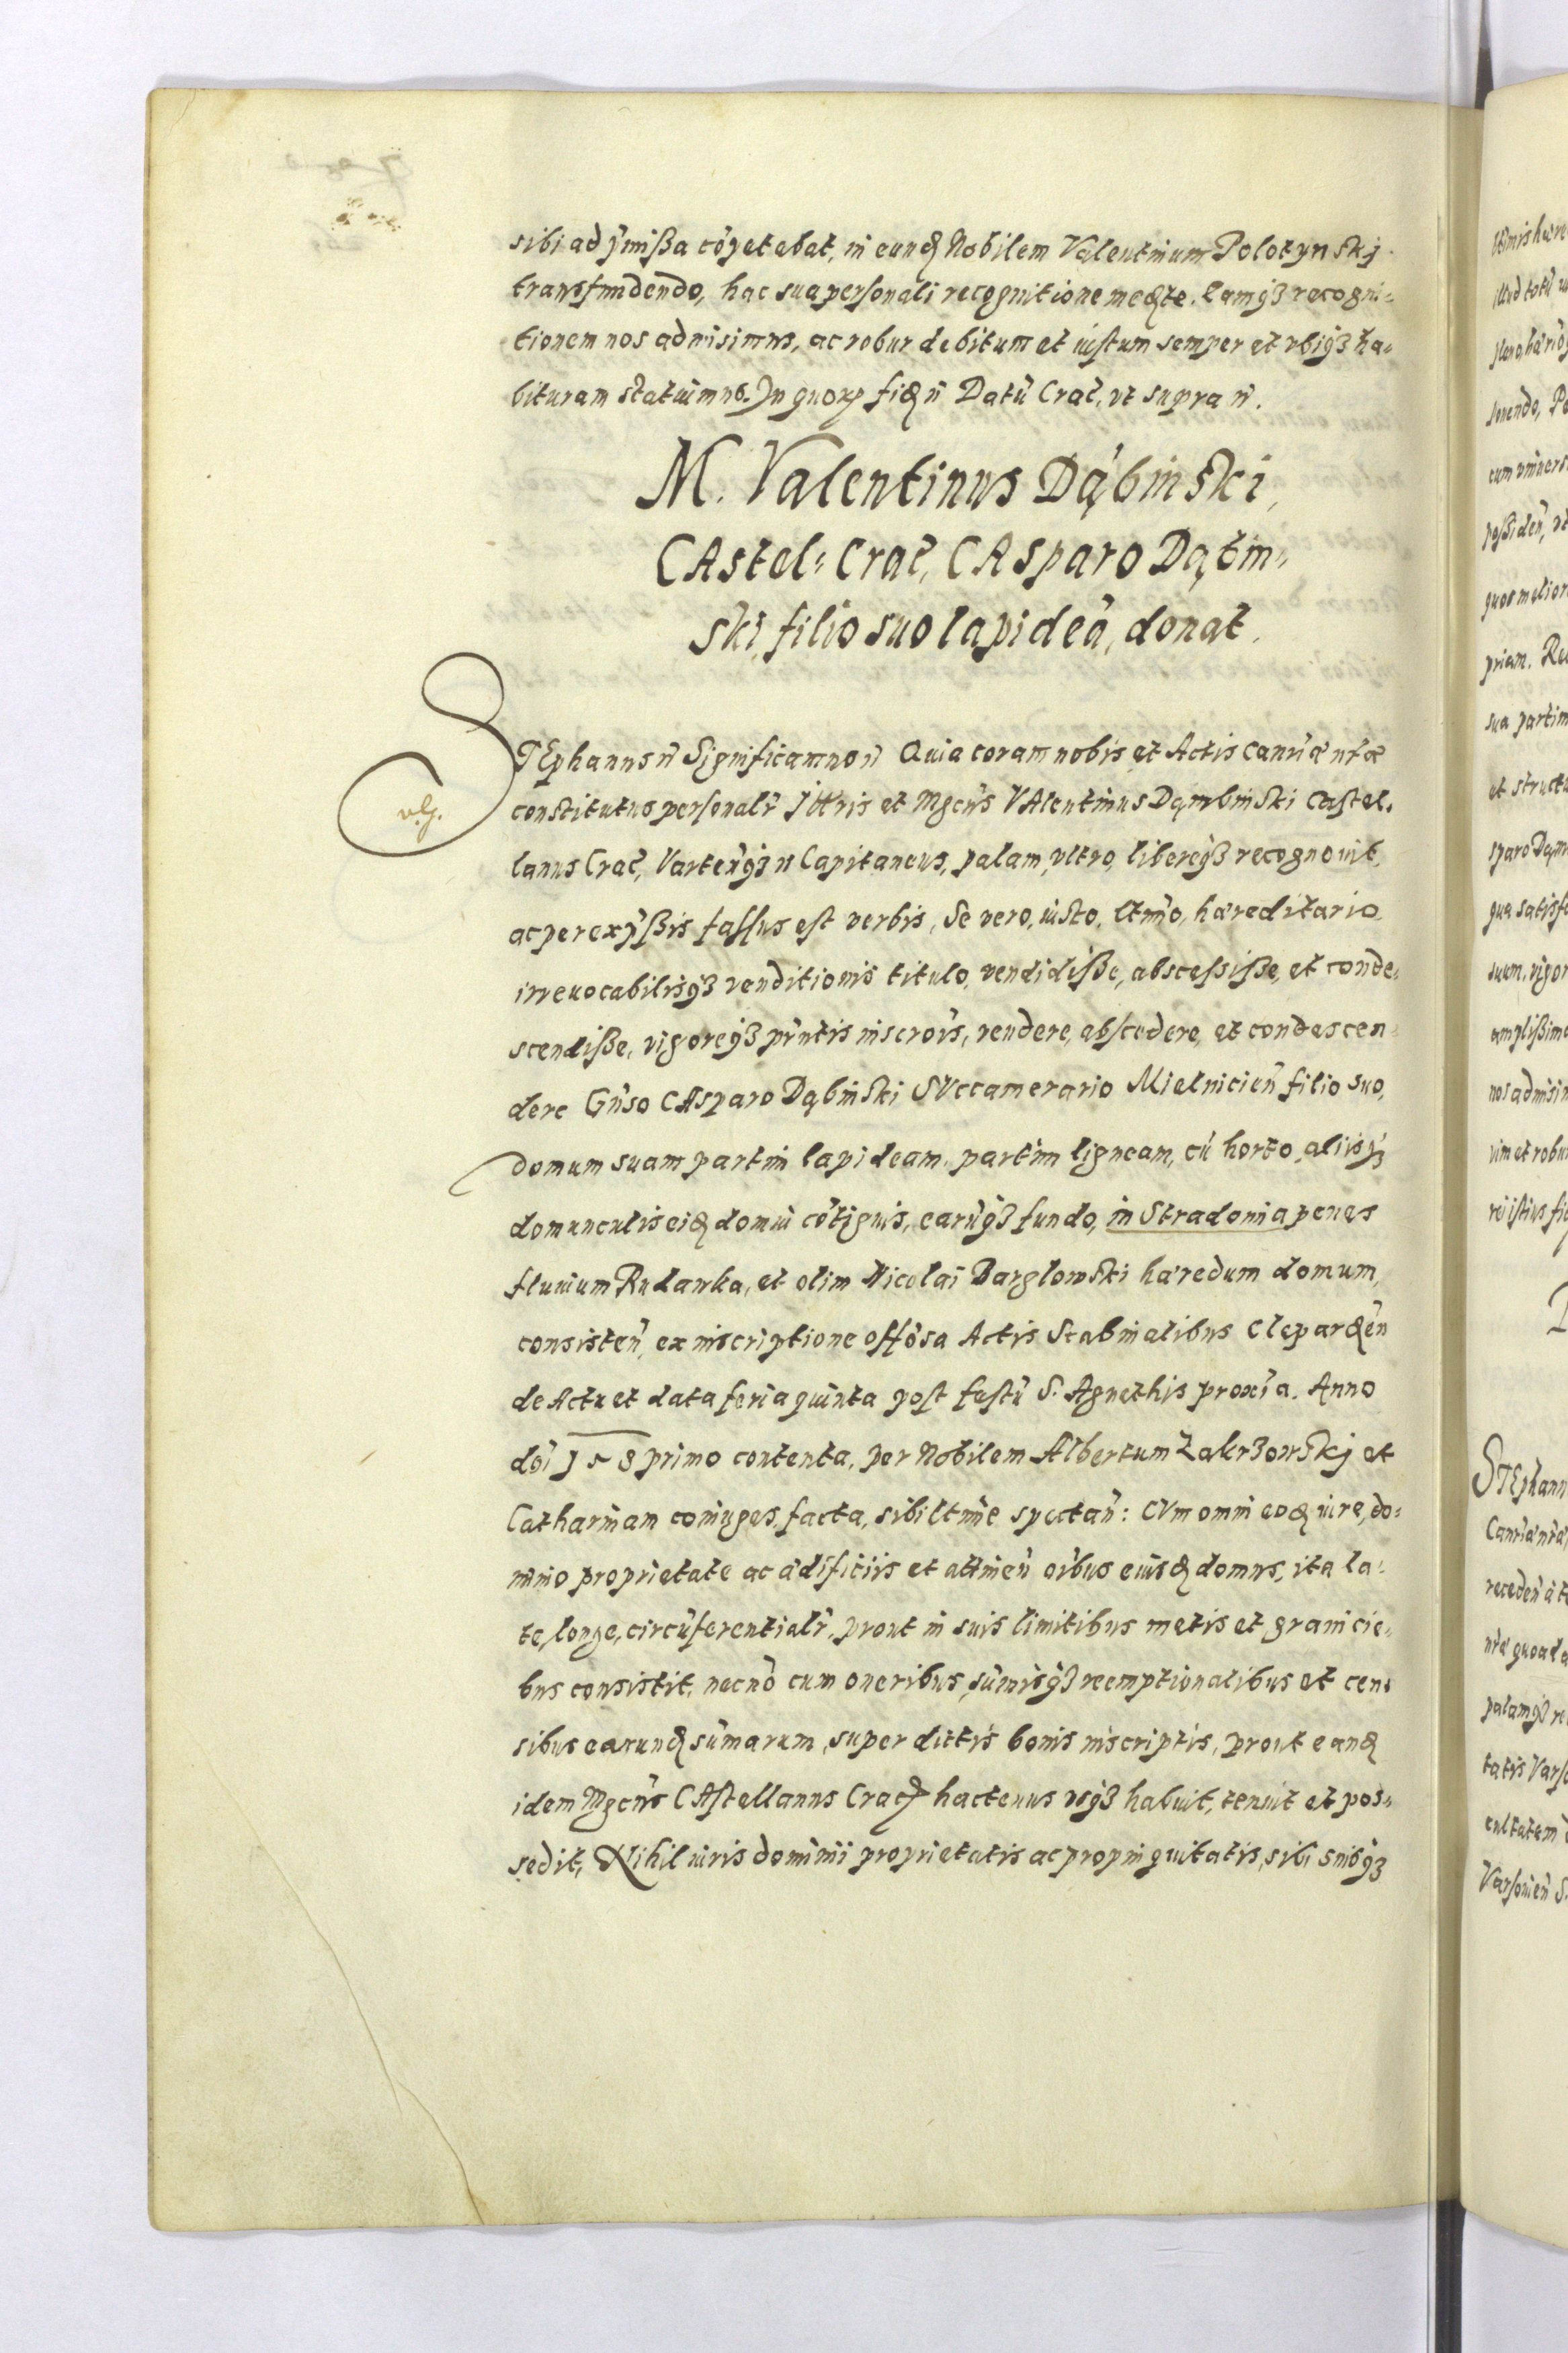 sibi ad p̃missa cõpetebat, in eundẽ Nobilem Valentinum Polotynskj
transfundendo, hac sua personali recognitione mediãte. Eamq3 recogni-
tionem nos admisimus, ac robur debitum et iustum semper et vbiq3 ha-
bituram statuimus. In quorũ fidẽ ñ Datũ Crac̃, vt supra ñ.
M. Valentinus Dąbinski,
CAstel: Crac̃, CAsparo Dąbin-
ski, filio suo lapideã, donat.
STEphanus ñ Significamus ñ Quia coram nobis et Actis Canr̃iæ nr̃æ
constitutus personalr̃ Jllr̃is et Mgcũs VAlentinus Dąmbinski Castel-
lanus Crac̃, Vartẽq3 ñ Capitaneus, palam, vltro, libereq3 recognouit,
ac per exp̃ssis fassus est verbis, Se vero, iusto, ltm̃o, hæreditario
irreuocabilisq3 venditionis titulo, vendidisse, abscessisse, et conde-
scendisse, vigoreq3 pñtis inscrõis, vendere, abscedere, et condescen-
dere Gñso CAsparo Dąbinski SVccamerario Mielniciẽn filio suo,
domum suam partim lapideam, partim ligneam, cũ horto, alijsq3
domunculis eidẽ domui cõtiguis, earũq3 fundo, in Stradomia penes
fluuium Rudawka, et olim Nicolai Barglowski hæredum domum,
consisteñ, ex inscriptione offõsa Actis Scabinalibus Clepardẽn
de Actu et data feria quinta post festũ S. Agnethis proxĩa. Anno
dñi 158 primo contenta, per Nobilem Albertum Zakrzowskj et
Catharinam coniuges, facta, sibi ltm̃e spectañ: CVm omni eodẽ iure, do-
minio proprietate ac ædificiis et attineñ oĩbus eiusdẽ domus, ita la-
te, longe, circũferentialr̃, prout in suis limitibus metis et granicie-
bus consistit, necnõ cum oneribus, sũmisq3 reemptionalibus et cen-
sibus earundẽ sũmarum, super dictis bonis inscriptis, prout eandẽ
idem Mgcũs CAstellanus Crac̃ hactenus vsq3 habuit, tenuit et pos-
sedit, Nihil iuris dominii proprietatis ac propinquitatis, sibi suisq3